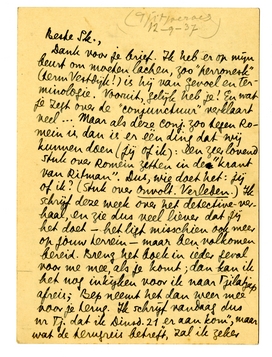 (Tjitjoeroeg)
12-9-'37
Beste Sk.,
Dank voor je brief. Ik heb er op mijn
beurt om moeten lachen, zoo "heroriek"
(term Vestdijk!) is hij van gevoel en ter-
minologie. Vooruit, gelijk heb je! En wat
je zegt over de "conjunctuur" verklaart
veel... Maar als deze conj. zoo tegen Ro-
mein is dan is er één ding dat wij
kunnen doen (jij of ik): een zeer lovend
stuk over Romein zetten in de "krant
van Ritman". Dus, wie doet het: jij
of ik? (Stuk over Onvolt. Verleden.) Ik
schrijf deze week over het detective-ver-
haal, en zie dus veel liever dat jij
het doet - het ligt misschien ook meer
op jouw terrein - maar ben volkomen
bereid. Breng het boek in ieder geval
voor me mee, als je komt; dan kan ik
het nog inkijken voor ik naar Tjilatjap
afreis; Bep neemt het dan weer mee
voor je terug. Ik schrijf vandaag dus
nr Tj. dat ik Dinsd. 21 er aan kom, maar
wat de terugreis betreft, zal ik zeker